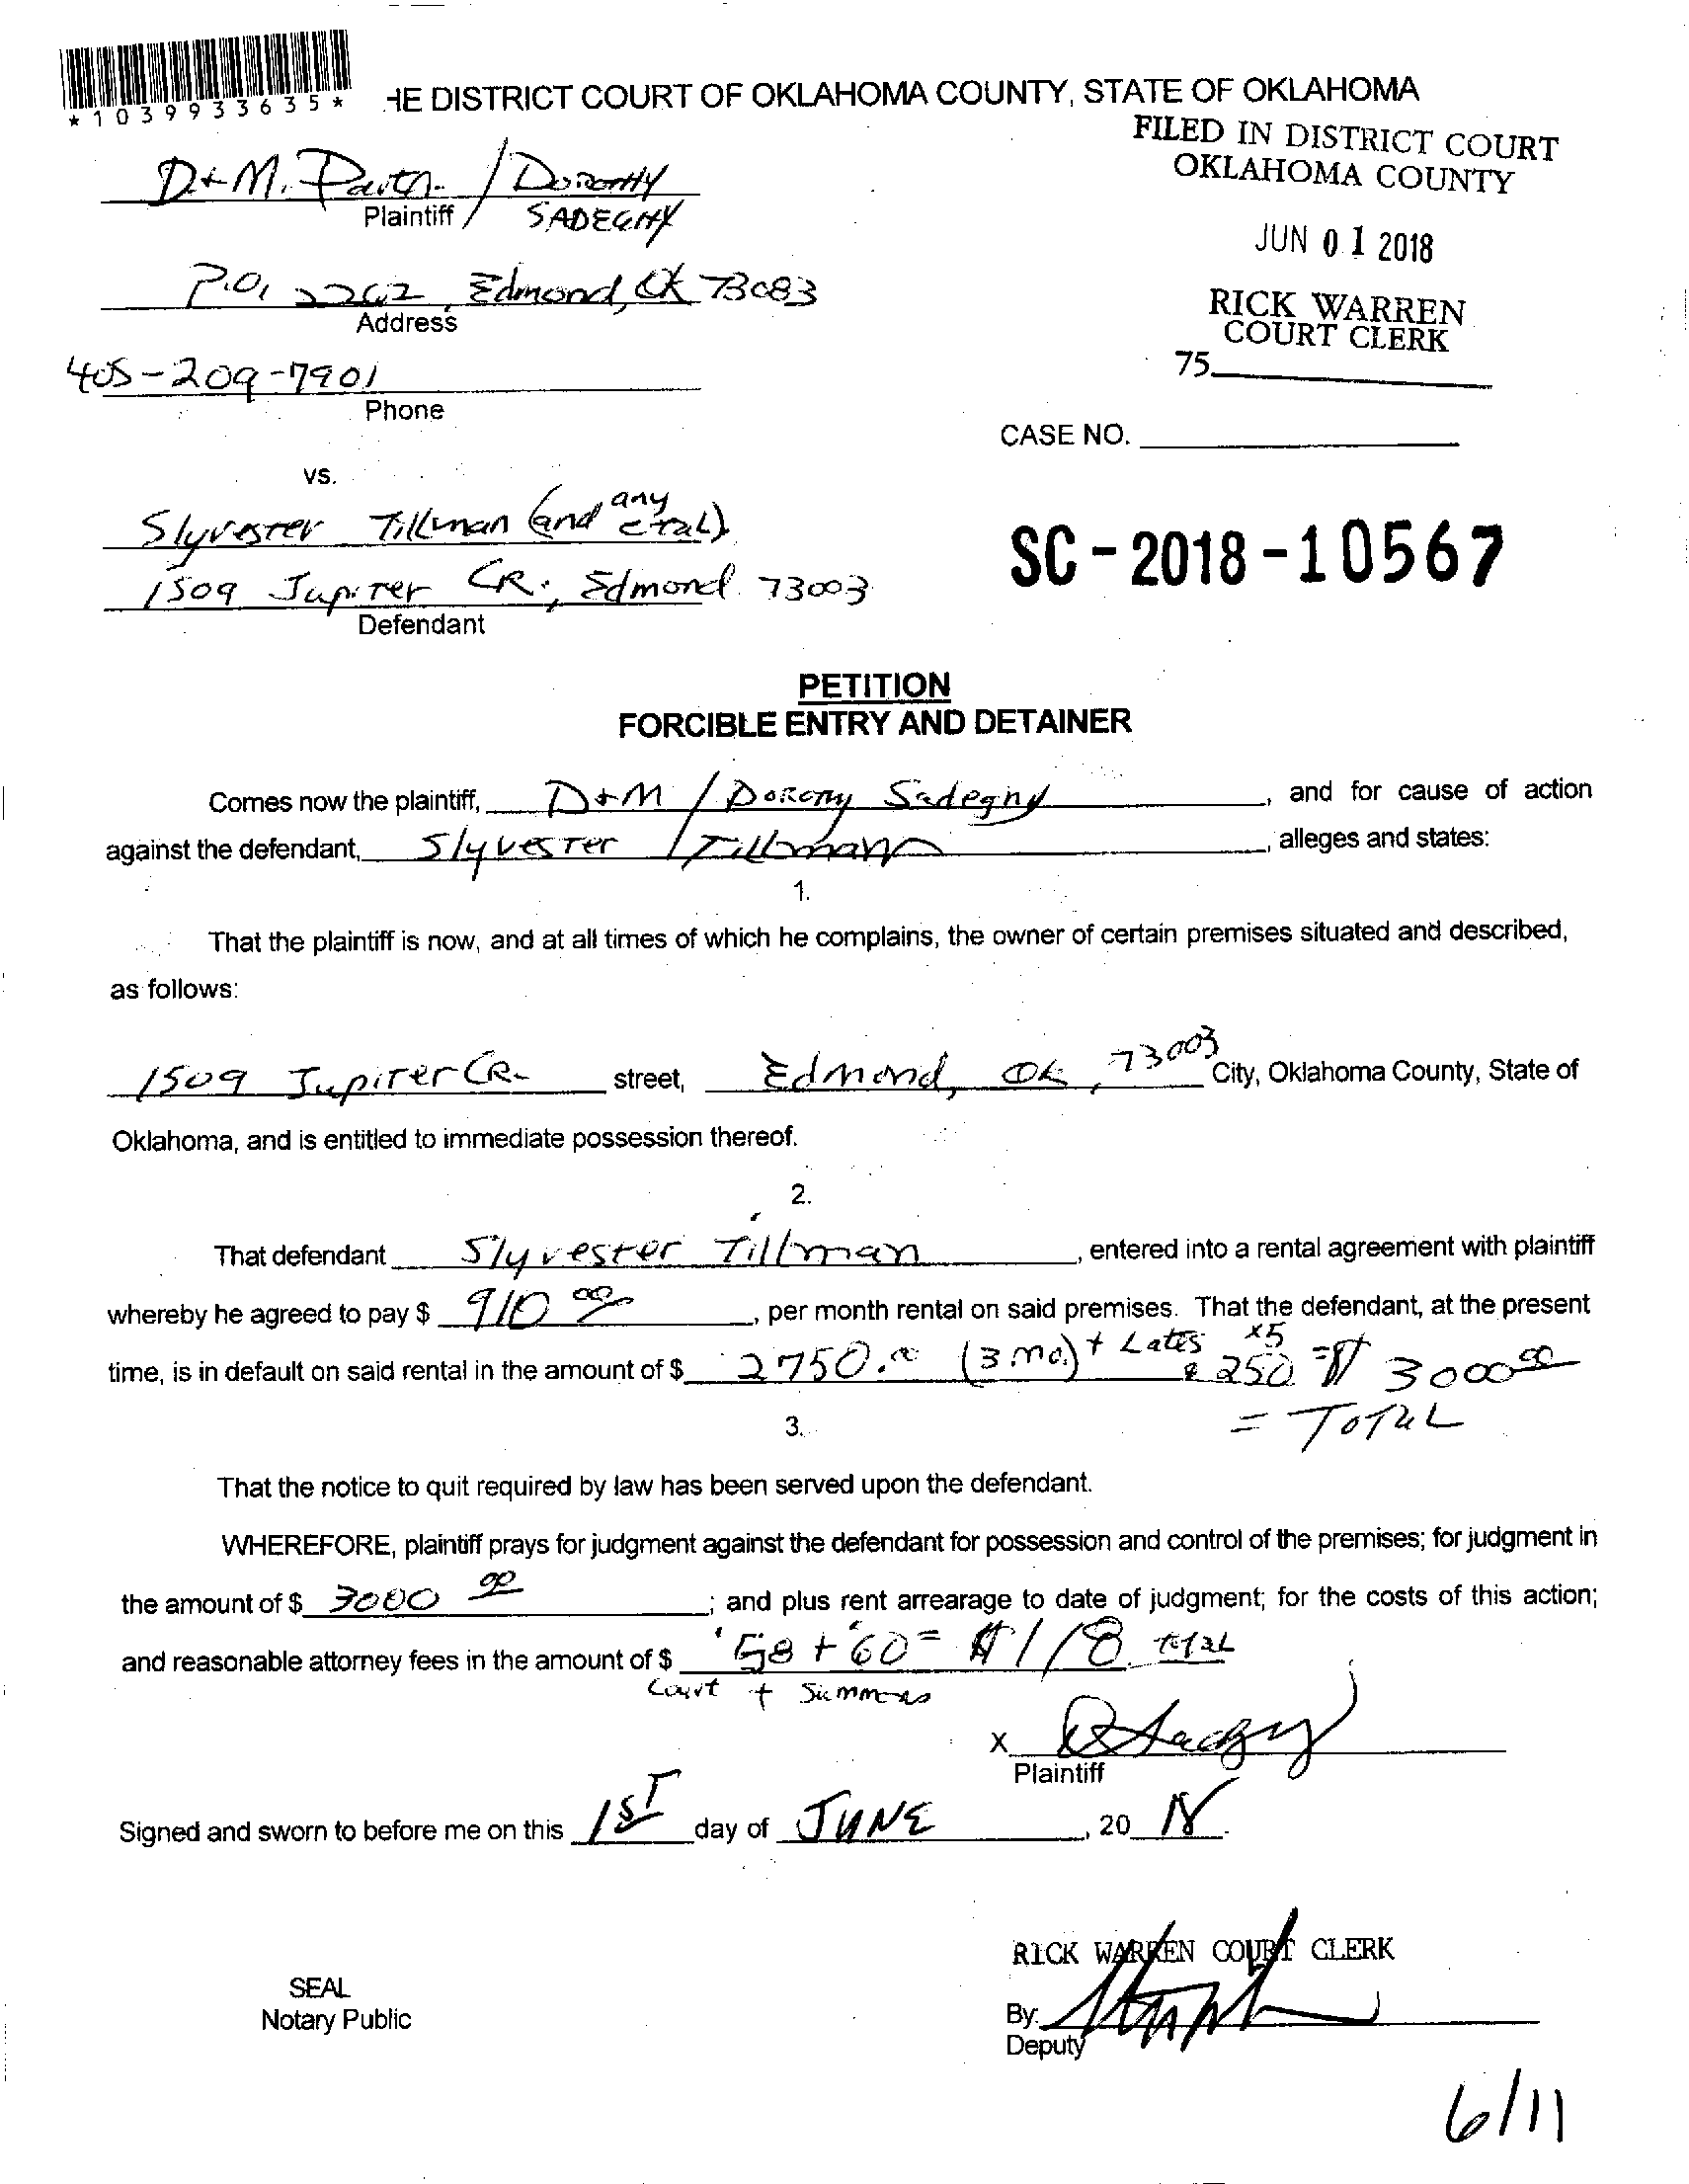 *1039933635*
HE DISTRICT COURT OF OKLAHOMA COUNTY, STATE OF OKLAHOMA
FILED IN DISTRICT COURT
OKLAHOMA COUNTY
JUN 01 2018
RICK WARREN
COURT CLERK
75
D+M. / DOROTHY
Plaintiff SADEGHY
P.O. 2262, Edmond, OK 73083
Address
405-209-7901
Phone
CASE NO.
vs.
Slyvester Tillman (and any etal)
SC-2018-10567
1509 Jupiter CR., Edmond 73003
Defendant
PETITION
FORCIBLE ENTRY AND DETAINER
Comes now the plaintiff, D+M / Dorothy Sadeghy, and for cause of action
against the defendant, Slyvester Tillman, alleges and states:
1.
That the plaintiff is now, and at all times of which he complains, the owner of certain premises situated and described,
as follows:
1509 Jupiter CR. street, Edmond, OK, 73003 City, Oklahoma County, State of
Oklahoma, and is entitled to immediate possession thereof.
2.
That defendant Slyvester Tillman, entered into a rental agreement with plaintiff
whereby he agreed to pay $ 910 00, per month rental on said premises. That the defendant, at the present
time, is in default on said rental in the amount of $ 2750.00 (3 mo.) + Lates x5 250 = $ 3000 00
= TOTAL
3.
That the notice to quit required by law has been served upon the defendant.
WHEREFORE, plaintiff prays for judgment against the defendant for possession and control of the premises; for judgment in
the amount of $ 3000 00; and plus rent arrearage to date of judgment; for the costs of this action;
and reasonable attorney fees in the amount of $ 58 + 60 = $118. total
Court + Summons
X
Plaintiff
Signed and sworn to before me on this 1ST day of JUNE, 20 18.
RICK WARREN COURT CLERK
SEAL
Notary Public
By:
Deputy
6/11